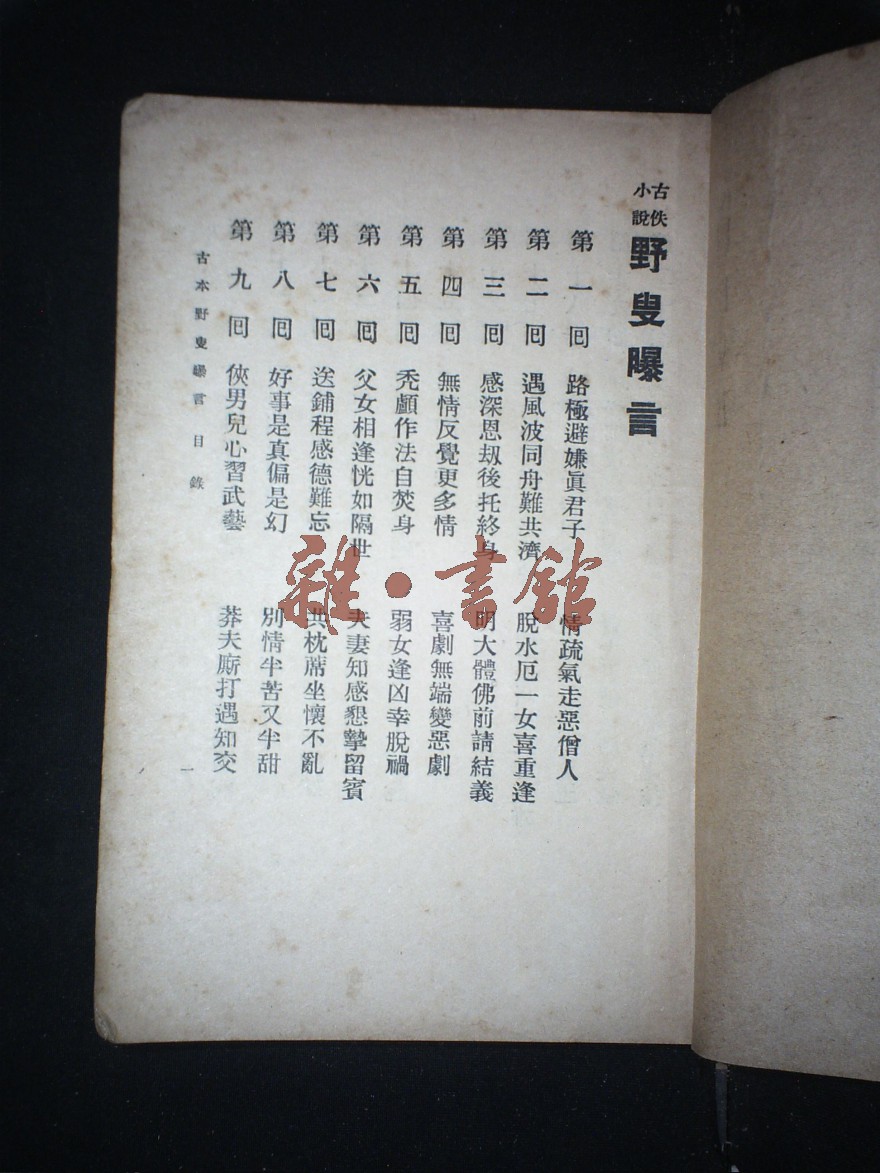 古佚小說 野叟曝言
第一囘 路極避嫌眞君子 情疏氣走惡僧人
第二囘 遇風波同舟難共濟 脫水厄一女喜重逢
第三囘 感深恩刼後托終身 明大體佛前請結義
第四囘 無情反覺更多情 喜劇無端變惡劇
第五囘 禿顱作法自焚身 弱女逢凶幸脫禍
第六囘 父女相逢恍如隔世 夫妻知感懇摯留賓
第七囘 送鋪程感德難忘 共枕蓆坐懷不亂
第八囘 好事是真偏是幻 別情半苦又半甜
第九囘 俠男兒心習武藝 莽夫廝打遇知交
古本野叟曝言目錄
一
雜·書館